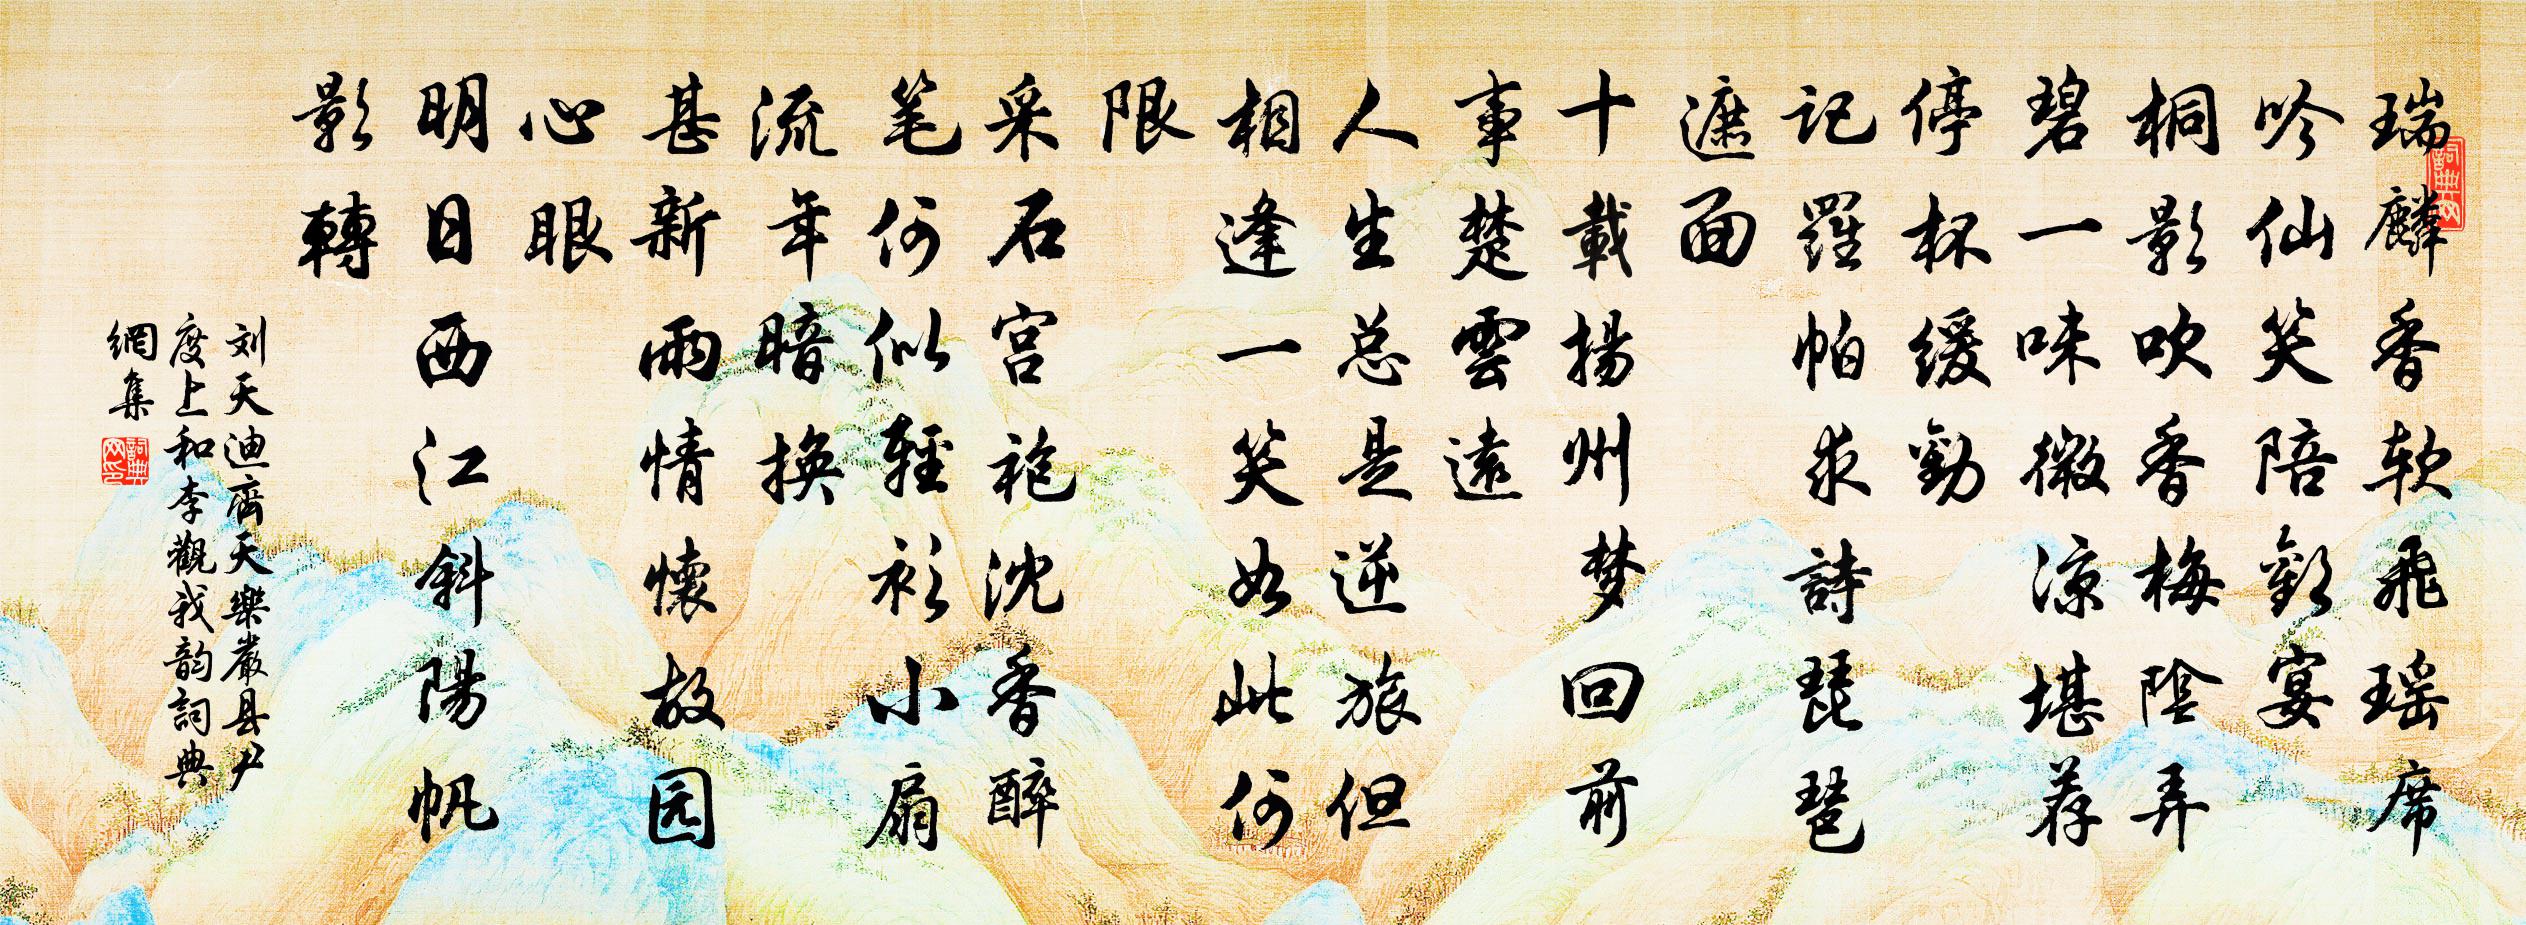 瑞麟香软飛瑶席
吟仙笑陪歡宴
桐影吹香梅陰弄
碧一味微涼堪荐
停杯缓勸
记羅帕求詩琵琶
遮面
十載揚州梦回前
事楚雲遠
人生总是逆旅但
相逢一笑如此何
限
采石宫袍沈香醉
笔何似輕衫小扇
流年暗换
甚新雨情懷故园
心眼
明日西江斜陽帆
影轉
刘天迪齊天樂嚴县尹
度上和李觀我韵詞典
網集